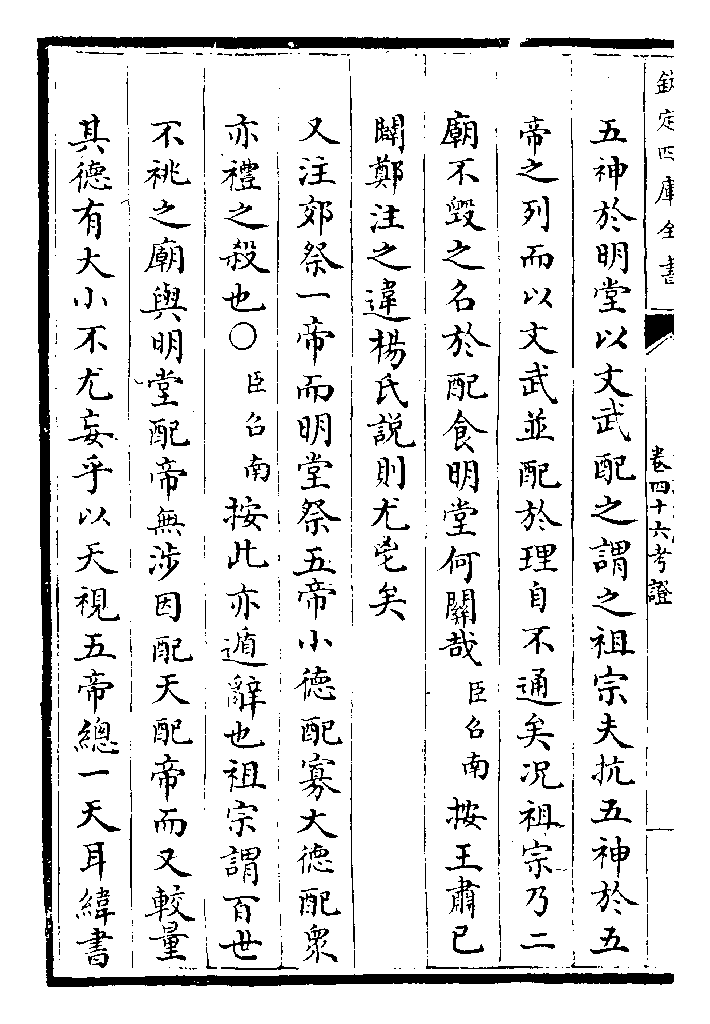 欽定四庫全書
卷四十六考證
五神於明堂以文武配之謂之祖宗夫抗五神於五
帝之列而以文武並配於理自不通矣况祖宗乃二
廟不毀之名於配食明堂何關哉臣召南按王肅已
闢鄭注之違楊氏說則尤鬯矣
又注郊祭一帝而明堂祭五帝小德配寡大德配衆
亦禮之殺也○臣召南按此亦遁辭也祖宗謂百世
不祧之廟與明堂配帝無涉因配天配帝而又較量
其德有大小不尤妄乎以天視五帝總一天耳緯書